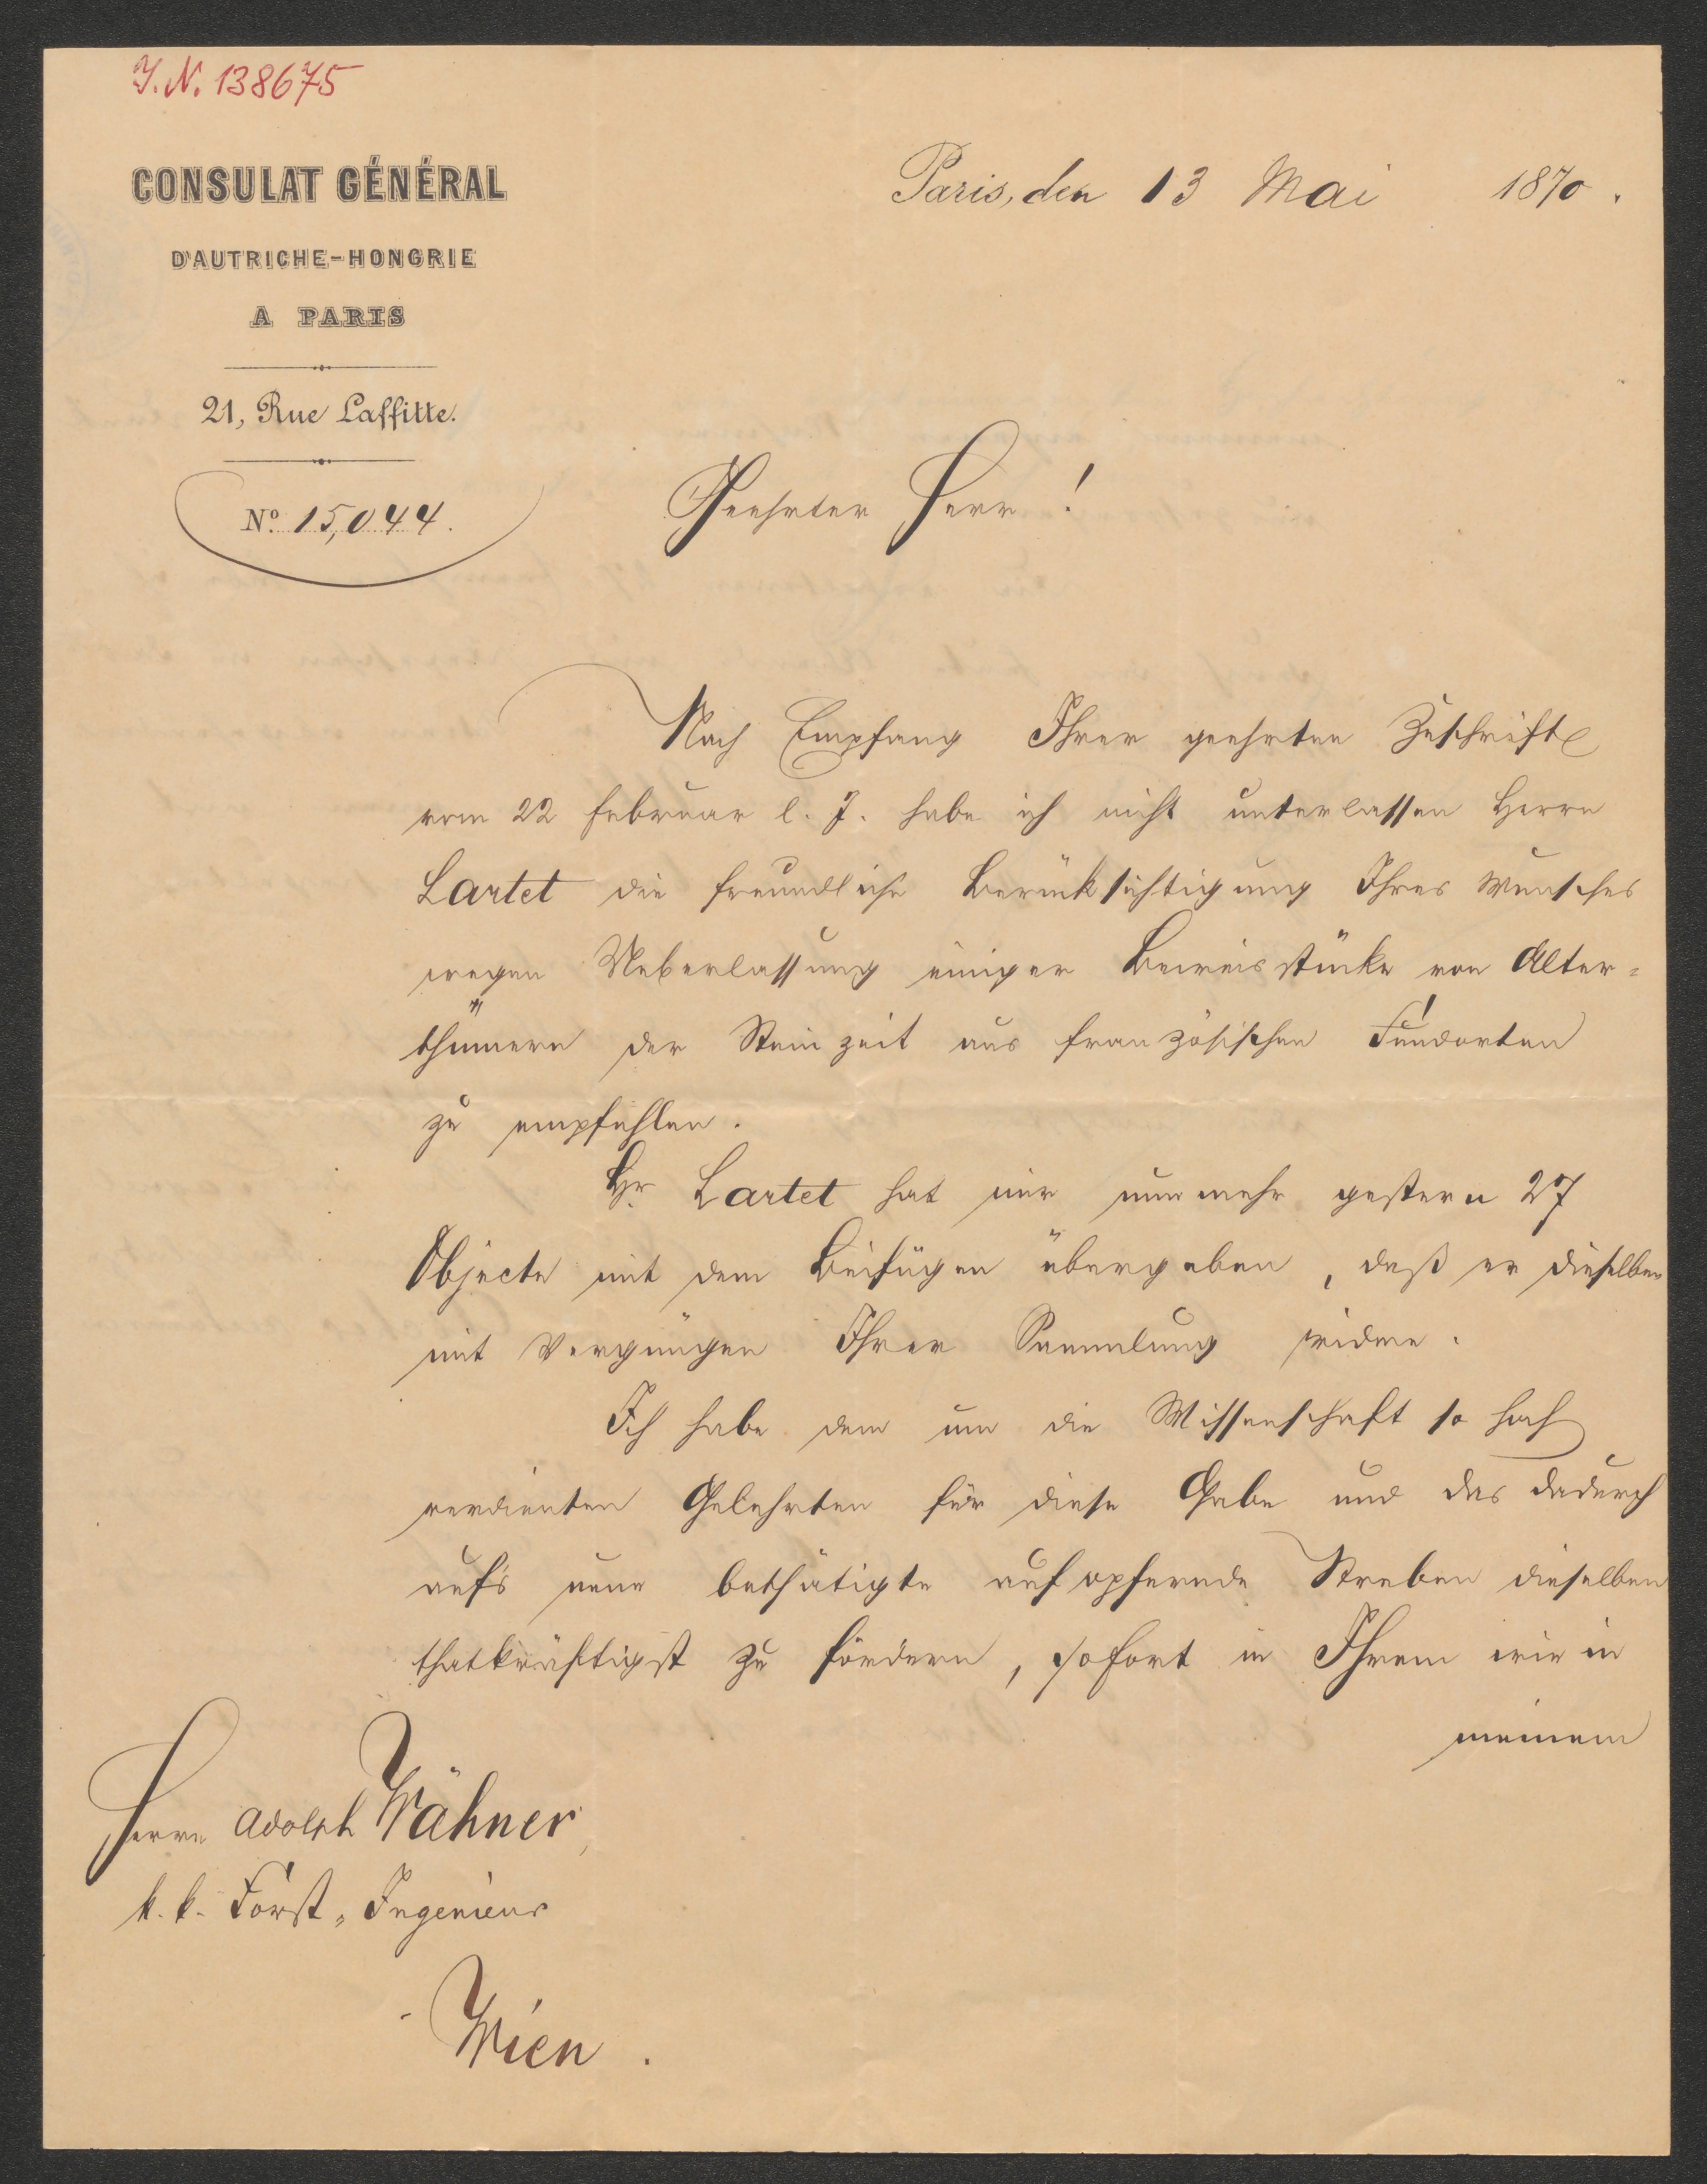 I. N. 138675
CONSULAT GÉNÉRAL
D'AUTRICHE-HONGRIE
A PARIS
21, Rue Laffitte.
Nº 15,044.
Paris, den 13 Mai 1870.
Geehrter Herr!
Nach Empfang Ihrer geehrten Zuschrift
vom 22 Februar l. J. habe ich nicht unterlassen Herrn
Lartet die freundliche Berücksichtigung Ihres Wunsches
wegen Ueberlassung einiger Beweisstücke von Alter-
thümern der Steinzeit aus französischen Fundorten
zu empfehlen.
Hr. Lartet hat mir nunmehr gestern 27
Objecte mit dem Beifügen übergeben, daß er dieselben
mit Vergnügen Ihrer Sammlung widme.
Ich habe dem um die Wissenschaft so hoch
verdienten Gelehrten für diese Gabe und das dadurch
auf's neue bethätigte aufopfernde Streben dieselben
thatkräftigst zu fördern, sofort in Ihrem wie in
meinem
Herrn Adolph Wähner,
k. k. Forst-Ingenieur
Wien.